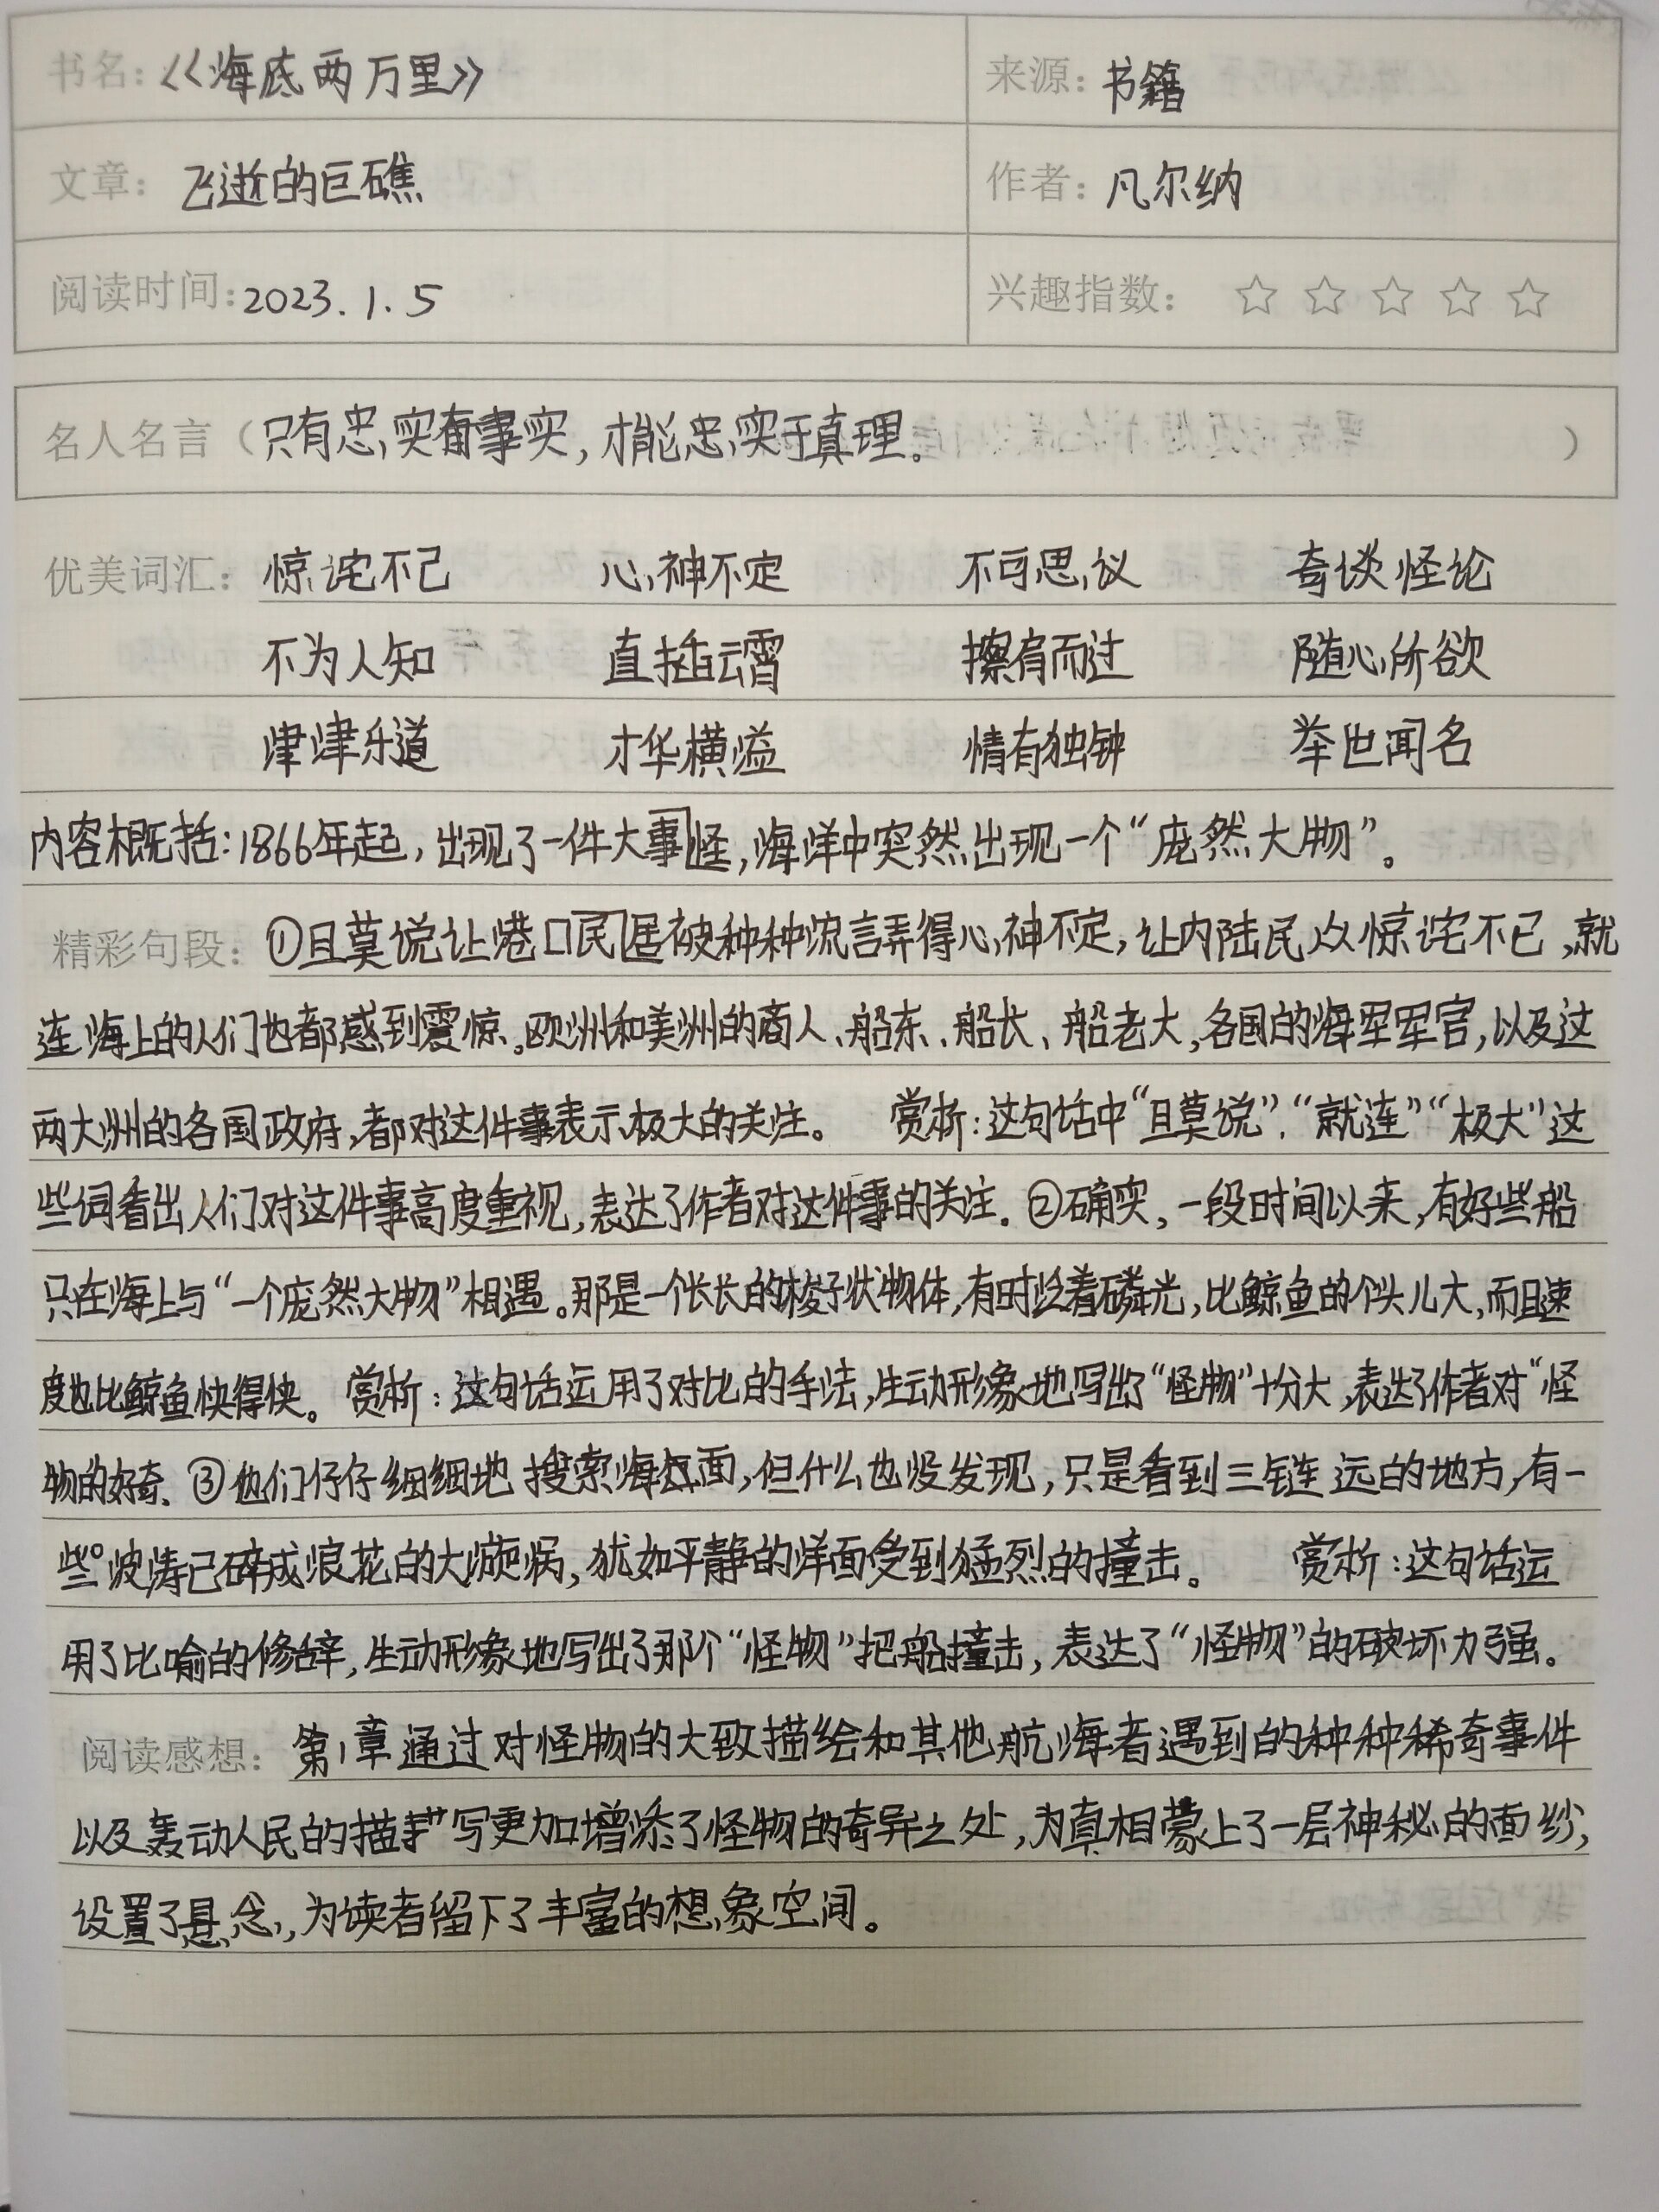 书名：《海底两万里》 来源：书籍
文章：飞逝的巨礁 作者：凡尔纳
阅读时间：2023.1.5 兴趣指数：☆ ☆ ☆ ☆ ☆
名人名言（只有忠实事实，才能忠实于真理。）
优美词汇：惊诧不已 心神不定 不可思议 奇谈怪论
不为人知 直插云霄 擦肩而过 随心所欲
津津乐道 才华横溢 情有独钟 举世闻名
内容概括：1866年起，出现了一件大事怪，海洋中突然出现一个“庞然大物”。
精彩句段：①且莫说让港口民居被种种流言弄得心神不定，让内陆民众惊诧不已，就
连海上的人们也都感到震惊。欧洲和美洲的商人、船东、船长、船老大，各国的海军军官，以及这
两大洲的各国政府，都对这件事表示极大的关注。 赏析：这句话中“且莫说”、“就连”“极大”这
些词看出人们对这件事高度重视，表达了作者对这件事的关注。②确实，一段时间以来，有好些船
只在海上与“一个庞然大物”相遇。那是一个长长的梭子状物体，有时泛着磷光，比鲸鱼的个头儿大，而且速
度也比鲸鱼快得快。赏析：这句话运用了对比的手法，生动形象地写出了“怪物”十分大，表达了作者对“怪
物的好奇。③他们仔仔细细地搜索海面，但什么也没发现，只是看到三链远的地方，有一
些波涛已碎成浪花的大漩涡，犹如平静的洋面受到猛烈的撞击。 赏析：这句话运
用了比喻的修辞，生动形象地写出了那个“怪物”把船撞击，表达了“怪物”的破坏力强。
阅读感想：第1章通过对怪物的大致描绘和其他航海者遇到的种种稀奇事件
以及轰动人民的描写更加增添了怪物的奇异之处，为真相蒙上了一层神秘的面纱，
设置了悬念，为读者留下了丰富的想象空间。